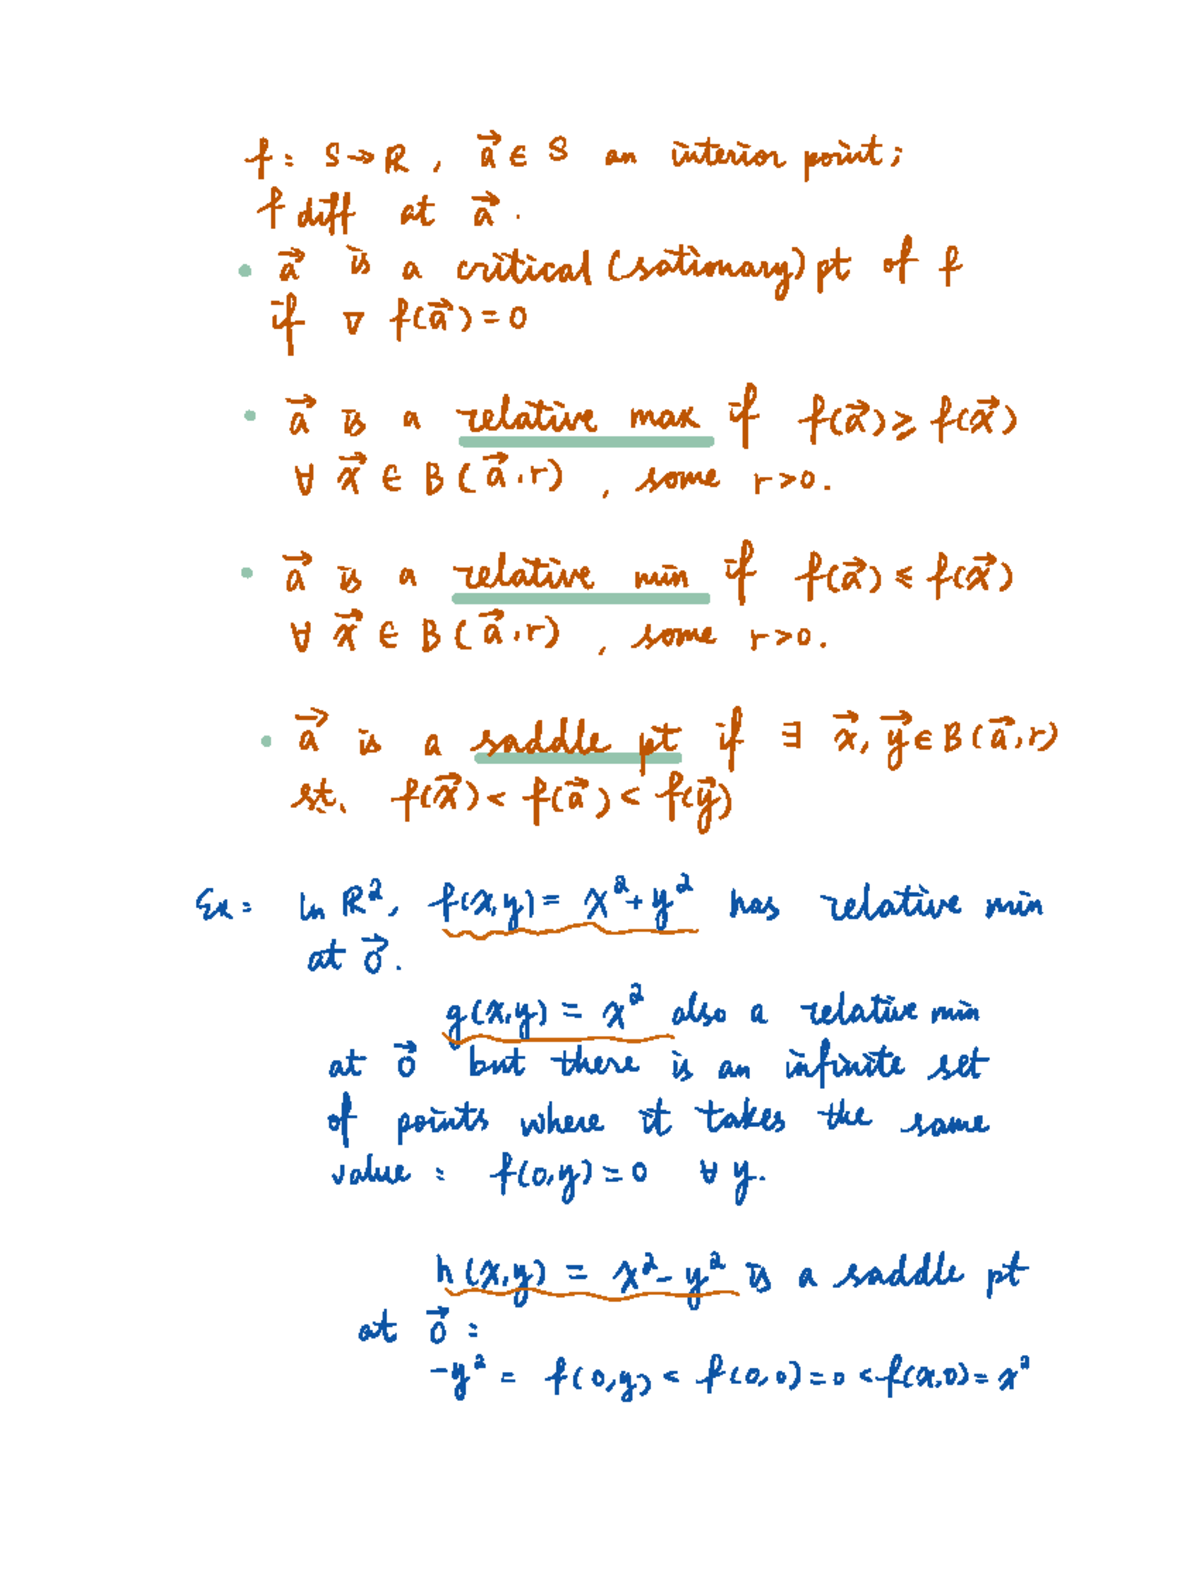 f: S→ℝ, a⃗ ∈ S an interior point;
f diff at a⃗.
• a⃗ is a critical (sationary) pt of f
if ∇ f(a⃗) = 0
• a⃗ is a relative max if f(a⃗) ⩾ f(x⃗)
∀ x⃗ ∈ B(a⃗,r), some r>0.
• a⃗ is a relative min if f(a⃗) ⩽ f(x⃗)
∀ x⃗ ∈ B(a⃗,r), some r>0.
• a⃗ is a saddle pt if ∃ x⃗, y⃗ ∈ B(a⃗,r)
st. f(x⃗) < f(a⃗) < f(y⃗)
Ex: In ℝ², f(x,y) = x²+y² has relative min
at 0⃗.
g(x,y) = x² also a relative min
at 0⃗ but there is an infinite set
of points where it takes the same
value: f(0,y)=0 ∀ y.
h(x,y) = x²-y² is a saddle pt
at 0⃗:
-y² = f(0,y) < f(0,0)=0 < f(x,0)= x²